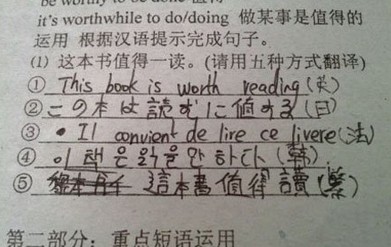 be worthy to be done 值得
it's worthwhile to do/doing 做某事是值得的
运用 根据汉语提示完成句子。
(1) 这本书值得一读。(请用五种方式翻译)
① This book is worth reading
② この本は読むに値する(日)
③ • Il convient de lire ce livere (法)
④ 이 책은 읽을만 하다 (韓)
⑤ 這本書值得讀(繁)
第二部分：重点短语运用